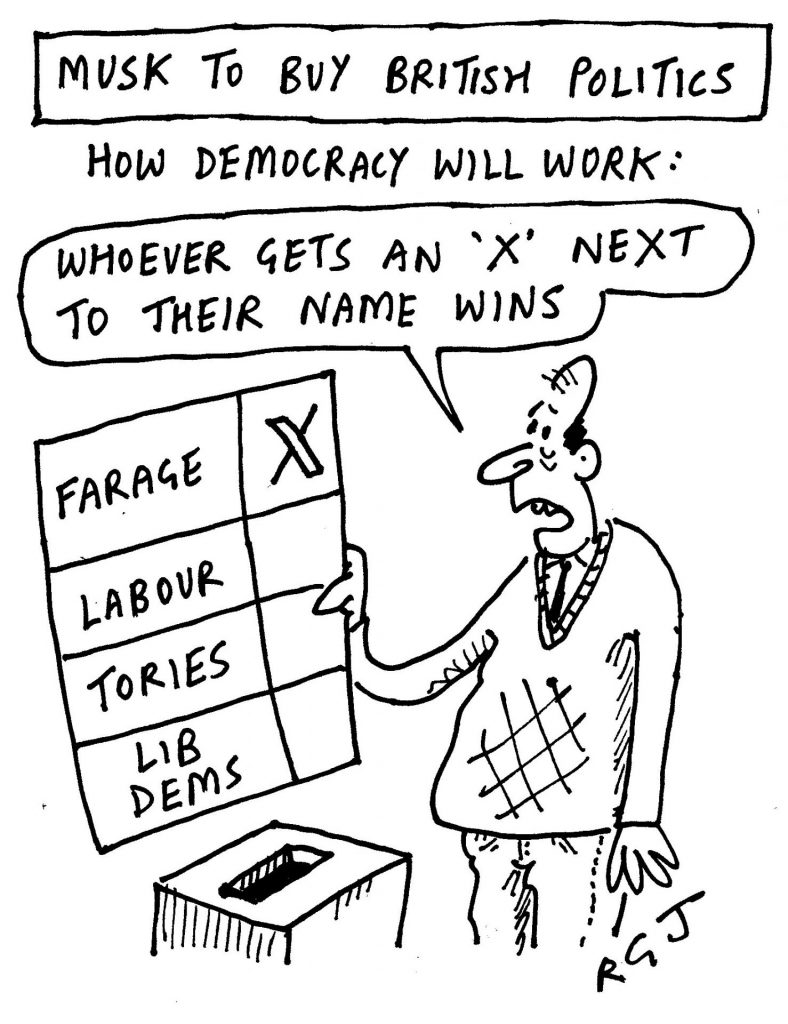 MUSK TO BUY BRITISH POLITICS
HOW DEMOCRACY WILL WORK:
WHOEVER GETS AN 'X' NEXT
TO THEIR NAME WINS
FARAGE X
LABOUR
TORIES
LIB
DEMS
RGJ